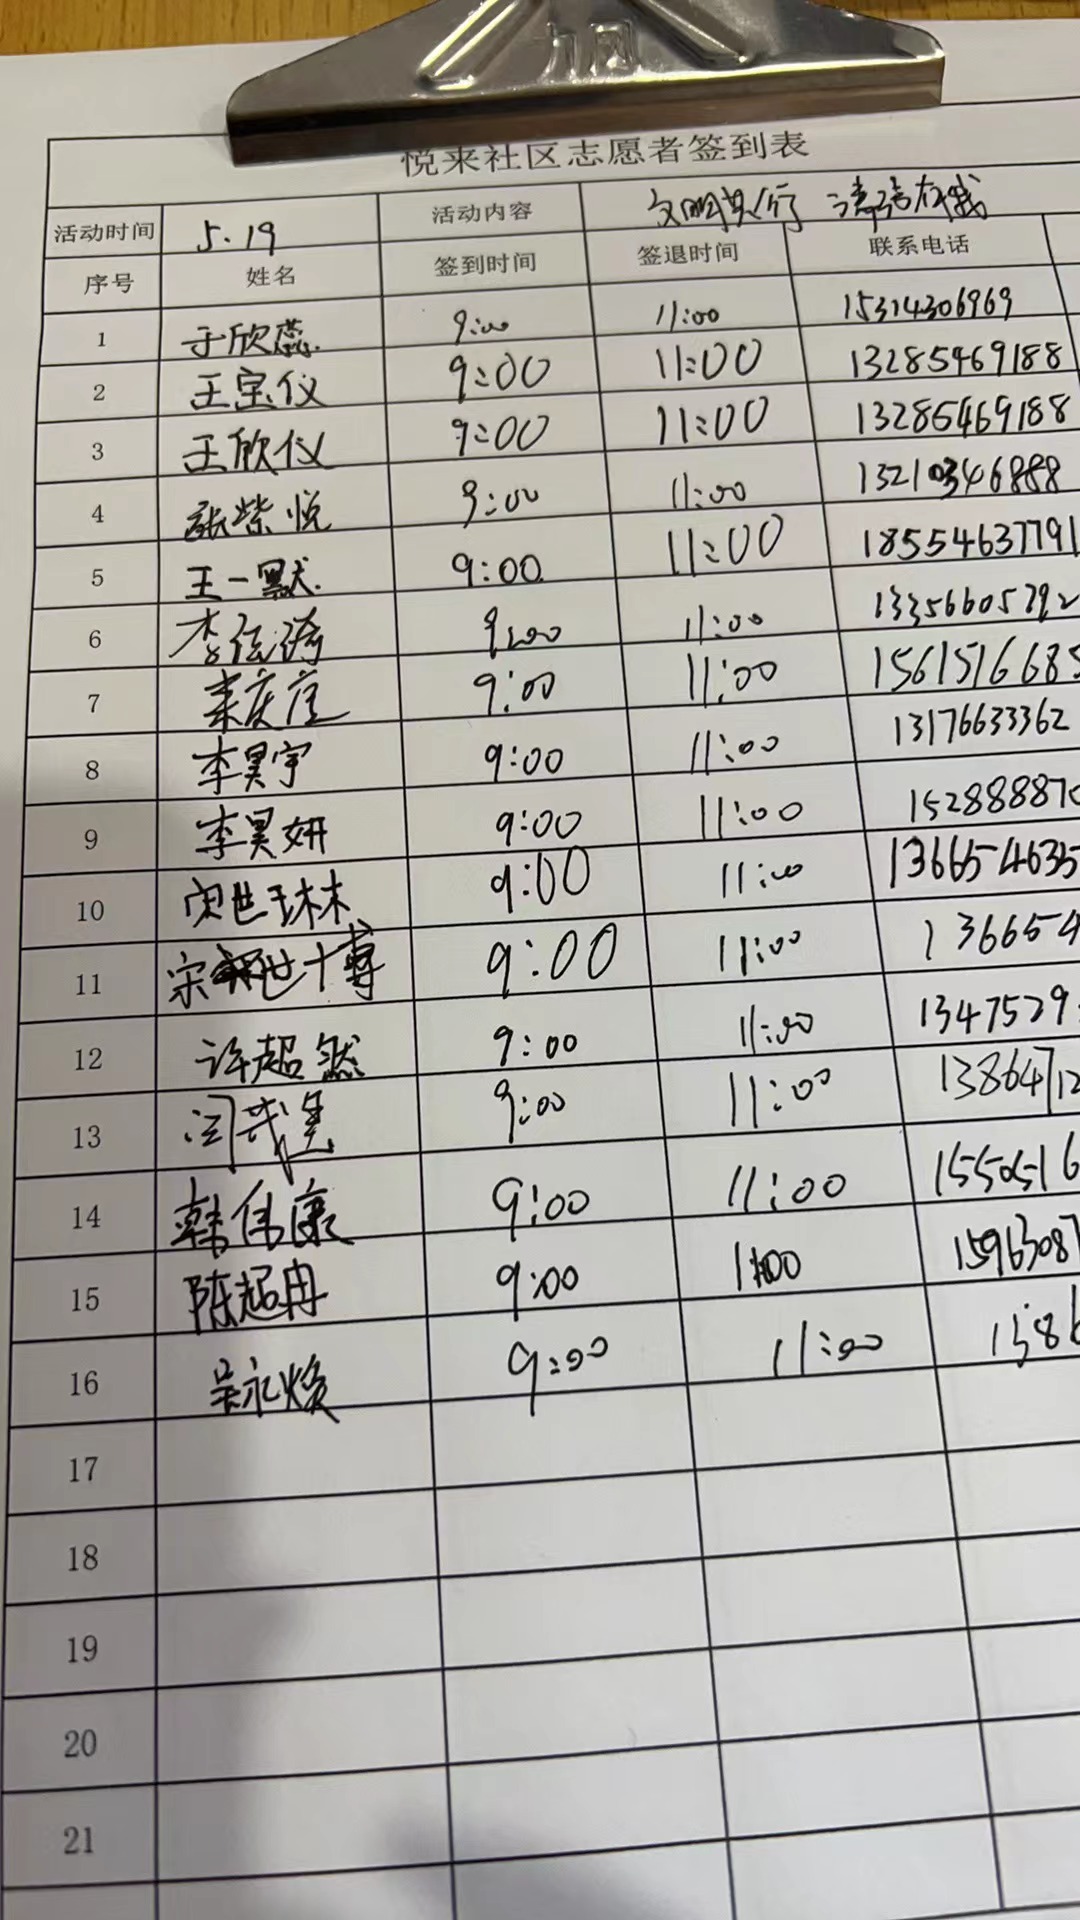 悦来社区志愿者签到表
活动时间 5.19 活动内容 文明其行 清洁在我
序号 姓名 签到时间 签退时间 联系电话
1 于欣蕊 9:00 11:00 15314306969
2 王宝仪 9:00 11:00 13285469188
3 王欣仪 9:00 11:00 13285469188
4 張紫悦 9:00 11:00 13210346888
5 王一默 9:00 11:00 18554637791
6 李 9:00 11:00 13356605792
7 9:00 11:00 1561516685
8 李昊宇 9:00 11:00 13176633362
9 李昊妍 9:00 11:00 152888870
10 世琳 9:00 11:00 136654635
11 宋世博 9:00 11:00 136654
12 许超然 9:00 11:00 1347529
13 闫 9:00 11:00 13864712
14 韩伟康 9:00 11:00 15505516
15 陈超冉 9:00 11:00 15963087
16 吴永焕 9:00 11:00 1586
17
18
19
20
21